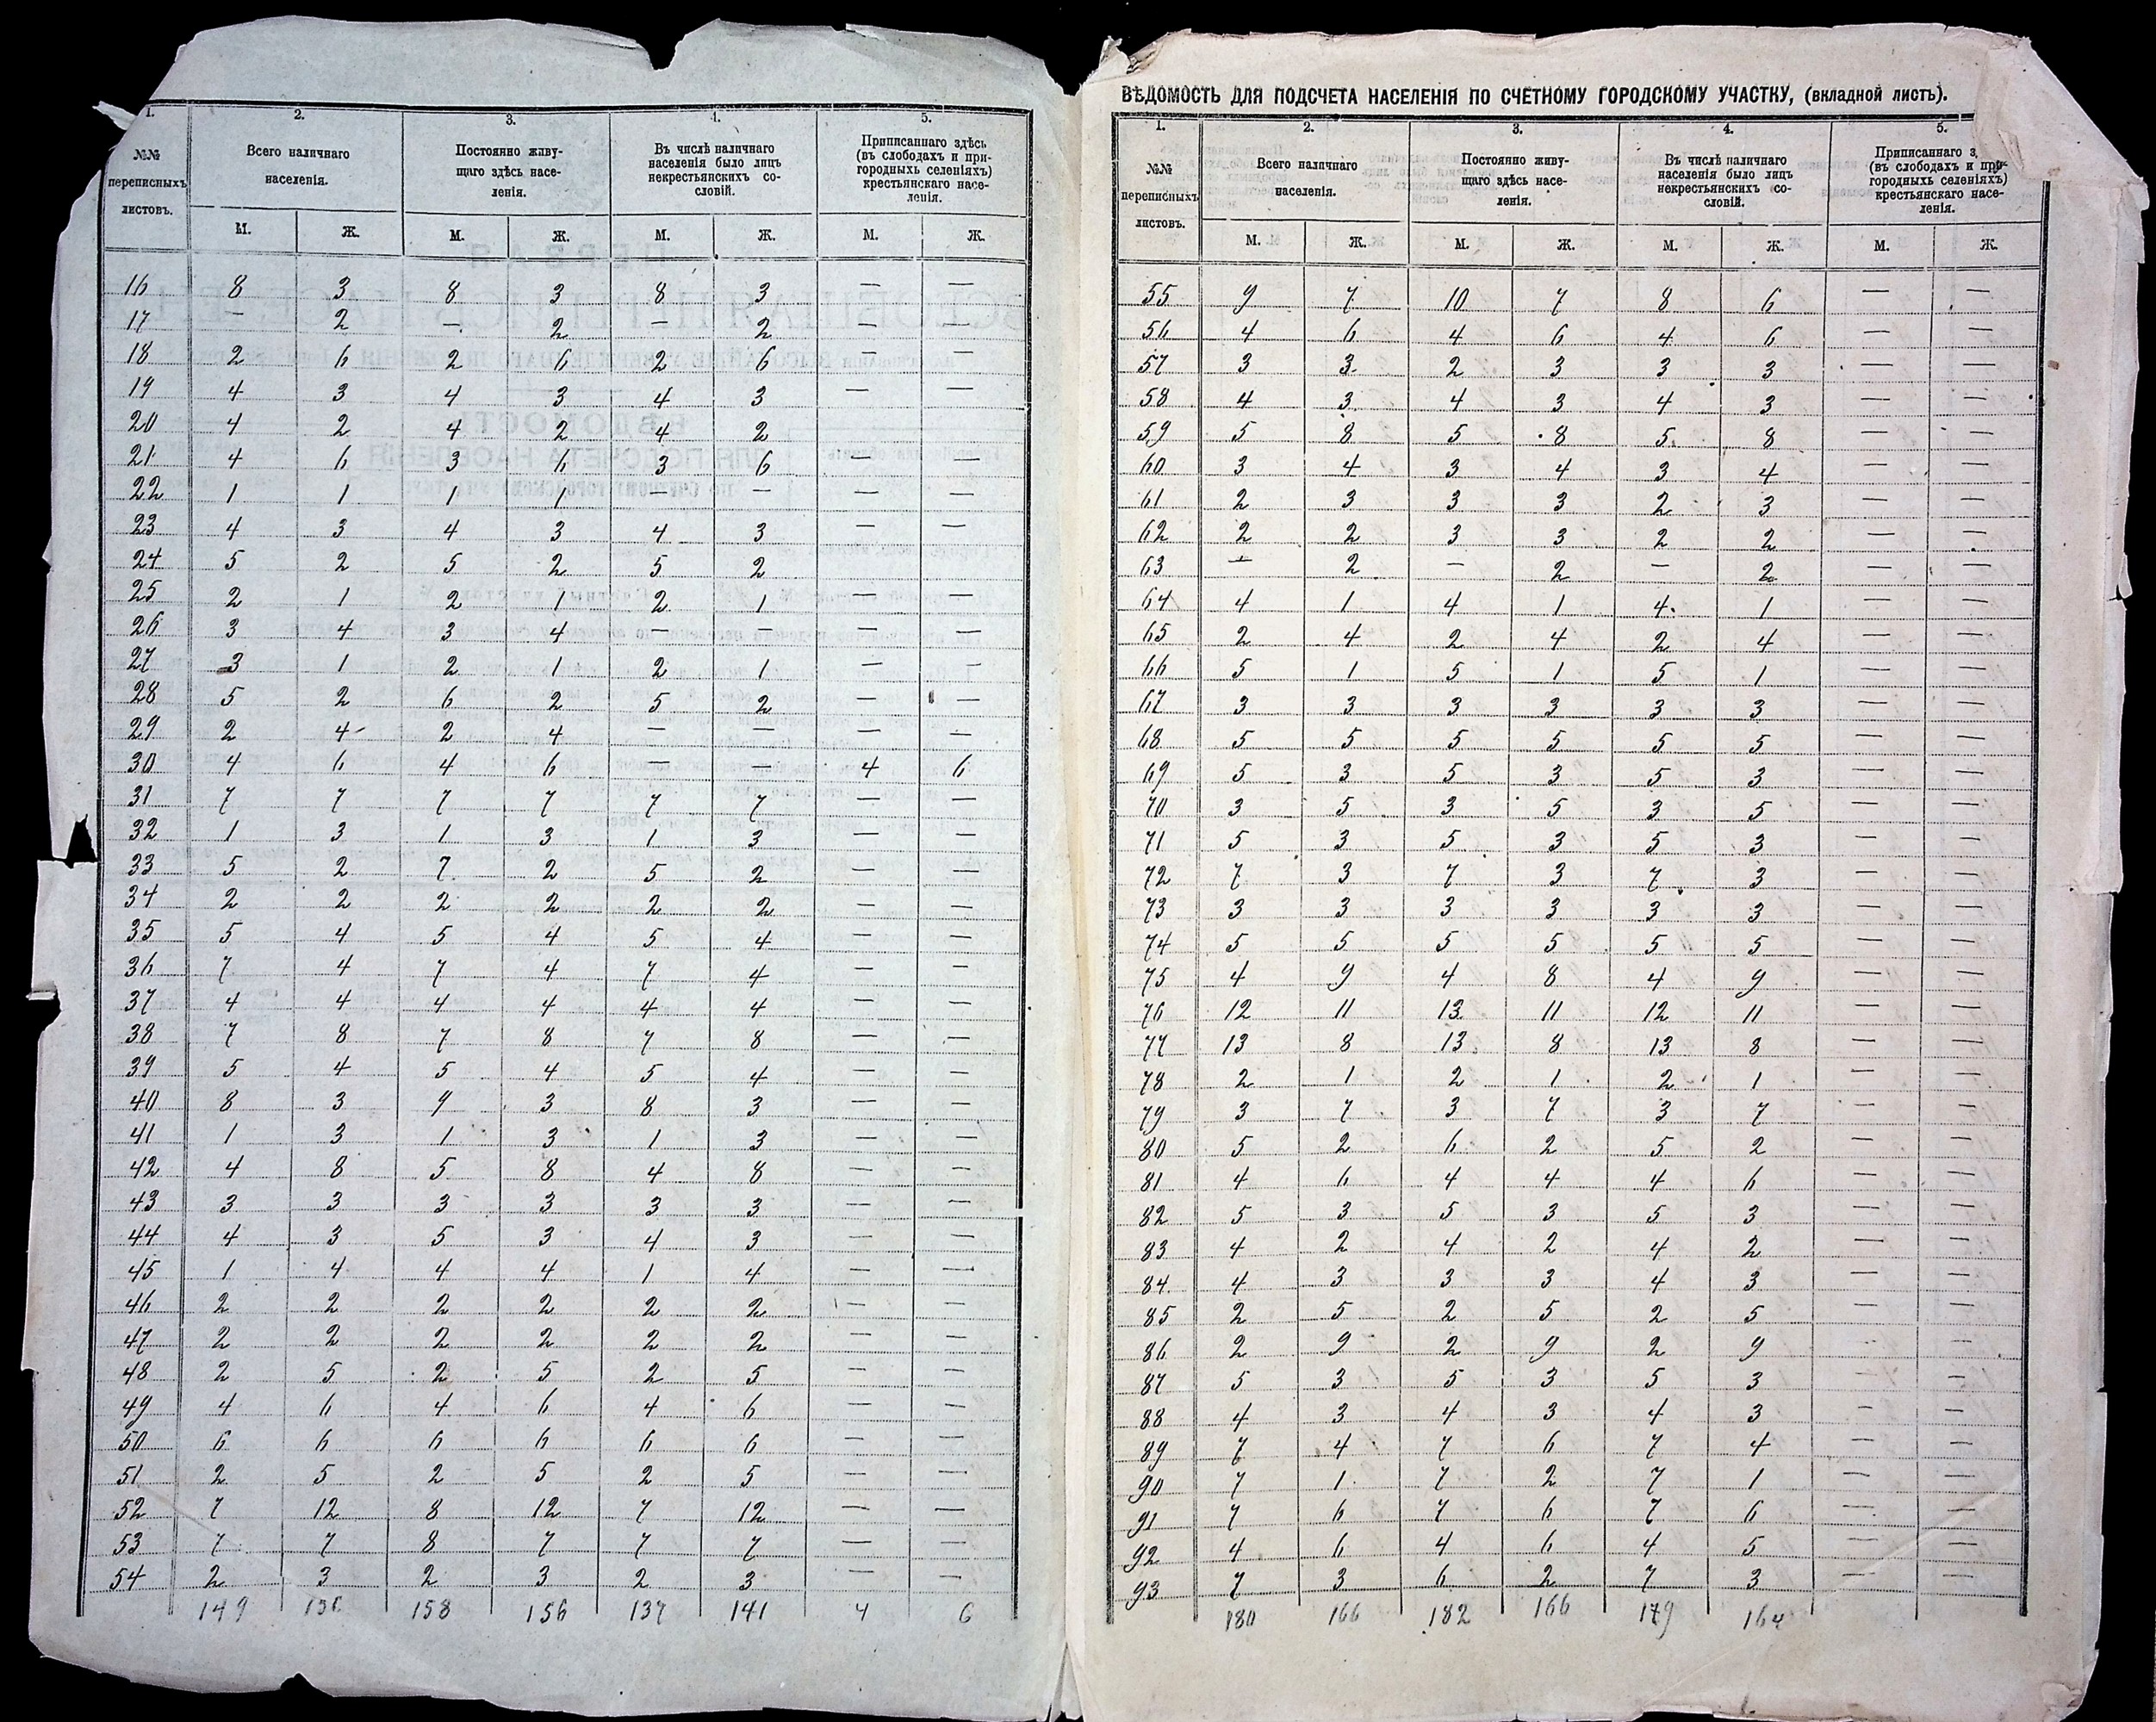 ВѢДОМОСТЬ ДЛЯ ПОДСЧЕТА НАСЕЛЕНІЯ ПО СЧЕТНОМУ ГОРОДСКОМУ УЧАСТКУ, (вкладной листъ).
1. 2. 3. 4. 5.
№№ переписныхъ листовъ.
Всего наличнаго населенія.
Постоянно живущаго здѣсь населенія.
Въ числѣ наличнаго населенія было лицъ некрестьянскихъ сословій.
Приписаннаго здѣсь (въ слободахъ и пригородныхъ селеніяхъ) крестьянскаго населенія.
М. Ж. М. Ж. М. Ж. М. Ж.
16 8 3 8 3 8 3 — —
17 — 2 — 2 — 2 — —
18 2 6 2 6 2 6 — —
19 4 3 4 3 4 3 — —
20 4 2 4 2 4 2 — —
21 4 6 3 6 3 6 — —
22 1 1 1 1 — — — —
23 4 3 4 3 4 3 — —
24 5 2 5 2 5 2 — —
25 2 1 2 1 2 1 — —
26 3 4 3 4 — — — —
27 3 1 2 1 2 1 — —
28 5 2 6 2 5 2 — —
29 2 4 2 4 — — — —
30 4 6 4 6 — — 4 6
31 7 7 7 7 7 7 — —
32 1 3 1 3 1 3 — —
33 5 2 7 2 5 2 — —
34 2 2 2 2 2 2 — —
35 5 4 5 4 5 4 — —
36 7 4 7 4 7 4 — —
37 4 4 4 4 4 4 — —
38 7 8 7 8 7 8 — —
39 5 4 5 4 5 4 — —
40 8 3 9 3 8 3 — —
41 1 3 1 3 1 3 — —
42 4 8 5 8 4 8 — —
43 3 3 3 3 3 3 — —
44 4 3 5 3 4 3 — —
45 1 4 4 4 1 4 — —
46 2 2 2 2 2 2 — —
47 2 2 2 2 2 2 — —
48 2 5 2 5 2 5 — —
49 4 6 4 6 4 6 — —
50 6 6 6 6 6 6 — —
51 2 5 2 5 2 5 — —
52 7 12 8 12 7 12 — —
53 7 7 8 7 7 7 — —
54 2 3 2 3 2 3 — —
149 158 156 137 141 4 6
1. 2. 3. 4. 5.
№№ переписныхъ листовъ.
Всего наличнаго населенія.
Постоянно живущаго здѣсь населенія.
Въ числѣ наличнаго населенія было лицъ некрестьянскихъ сословій.
Приписаннаго з (въ слободахъ и при городныхъ селеніяхъ) крестьянскаго населенія.
М. Ж. М. Ж. М. Ж. М. Ж.
55 9 7 10 7 8 6 — —
56 4 6 4 6 4 6 — —
57 3 3 2 3 3 3 — —
58 4 3 4 3 4 3 — —
59 5 8 5 8 5 8 — —
60 3 4 3 4 3 4 — —
61 2 3 3 3 2 3 — —
62 2 2 3 3 2 2 — —
63 — 2 — 2 — 2 — —
64 4 1 4 1 4 1 — —
65 2 4 2 4 2 4 — —
66 5 1 5 1 5 1 — —
67 3 3 3 3 3 3 — —
68 5 5 5 5 5 5 — —
69 5 3 5 3 5 3 — —
70 3 5 3 5 3 5 — —
71 5 3 5 3 5 3 — —
72 7 3 7 3 7 3 — —
73 3 3 3 3 3 3 — —
74 5 5 5 5 5 5 — —
75 4 9 4 8 4 9 — —
76 12 11 13 11 12 11 — —
77 13 8 13 8 13 8 — —
78 2 1 2 1 2 1 — —
79 3 7 3 7 3 7 — —
80 5 2 6 2 5 2 — —
81 4 6 4 4 4 6 — —
82 5 3 5 3 5 3 — —
83 4 2 4 2 4 2 — —
84 4 3 3 3 4 3 — —
85 2 5 2 5 2 5 — —
86 2 9 2 9 2 9 — —
87 5 3 5 3 5 3 — —
88 4 3 4 3 4 3 — —
89 7 4 7 6 7 4 — —
90 7 1 7 2 7 1 — —
91 7 6 7 6 7 6 — —
92 4 6 4 6 4 5 — —
93 7 3 6 2 7 3 — —
180 166 182 166 179 164